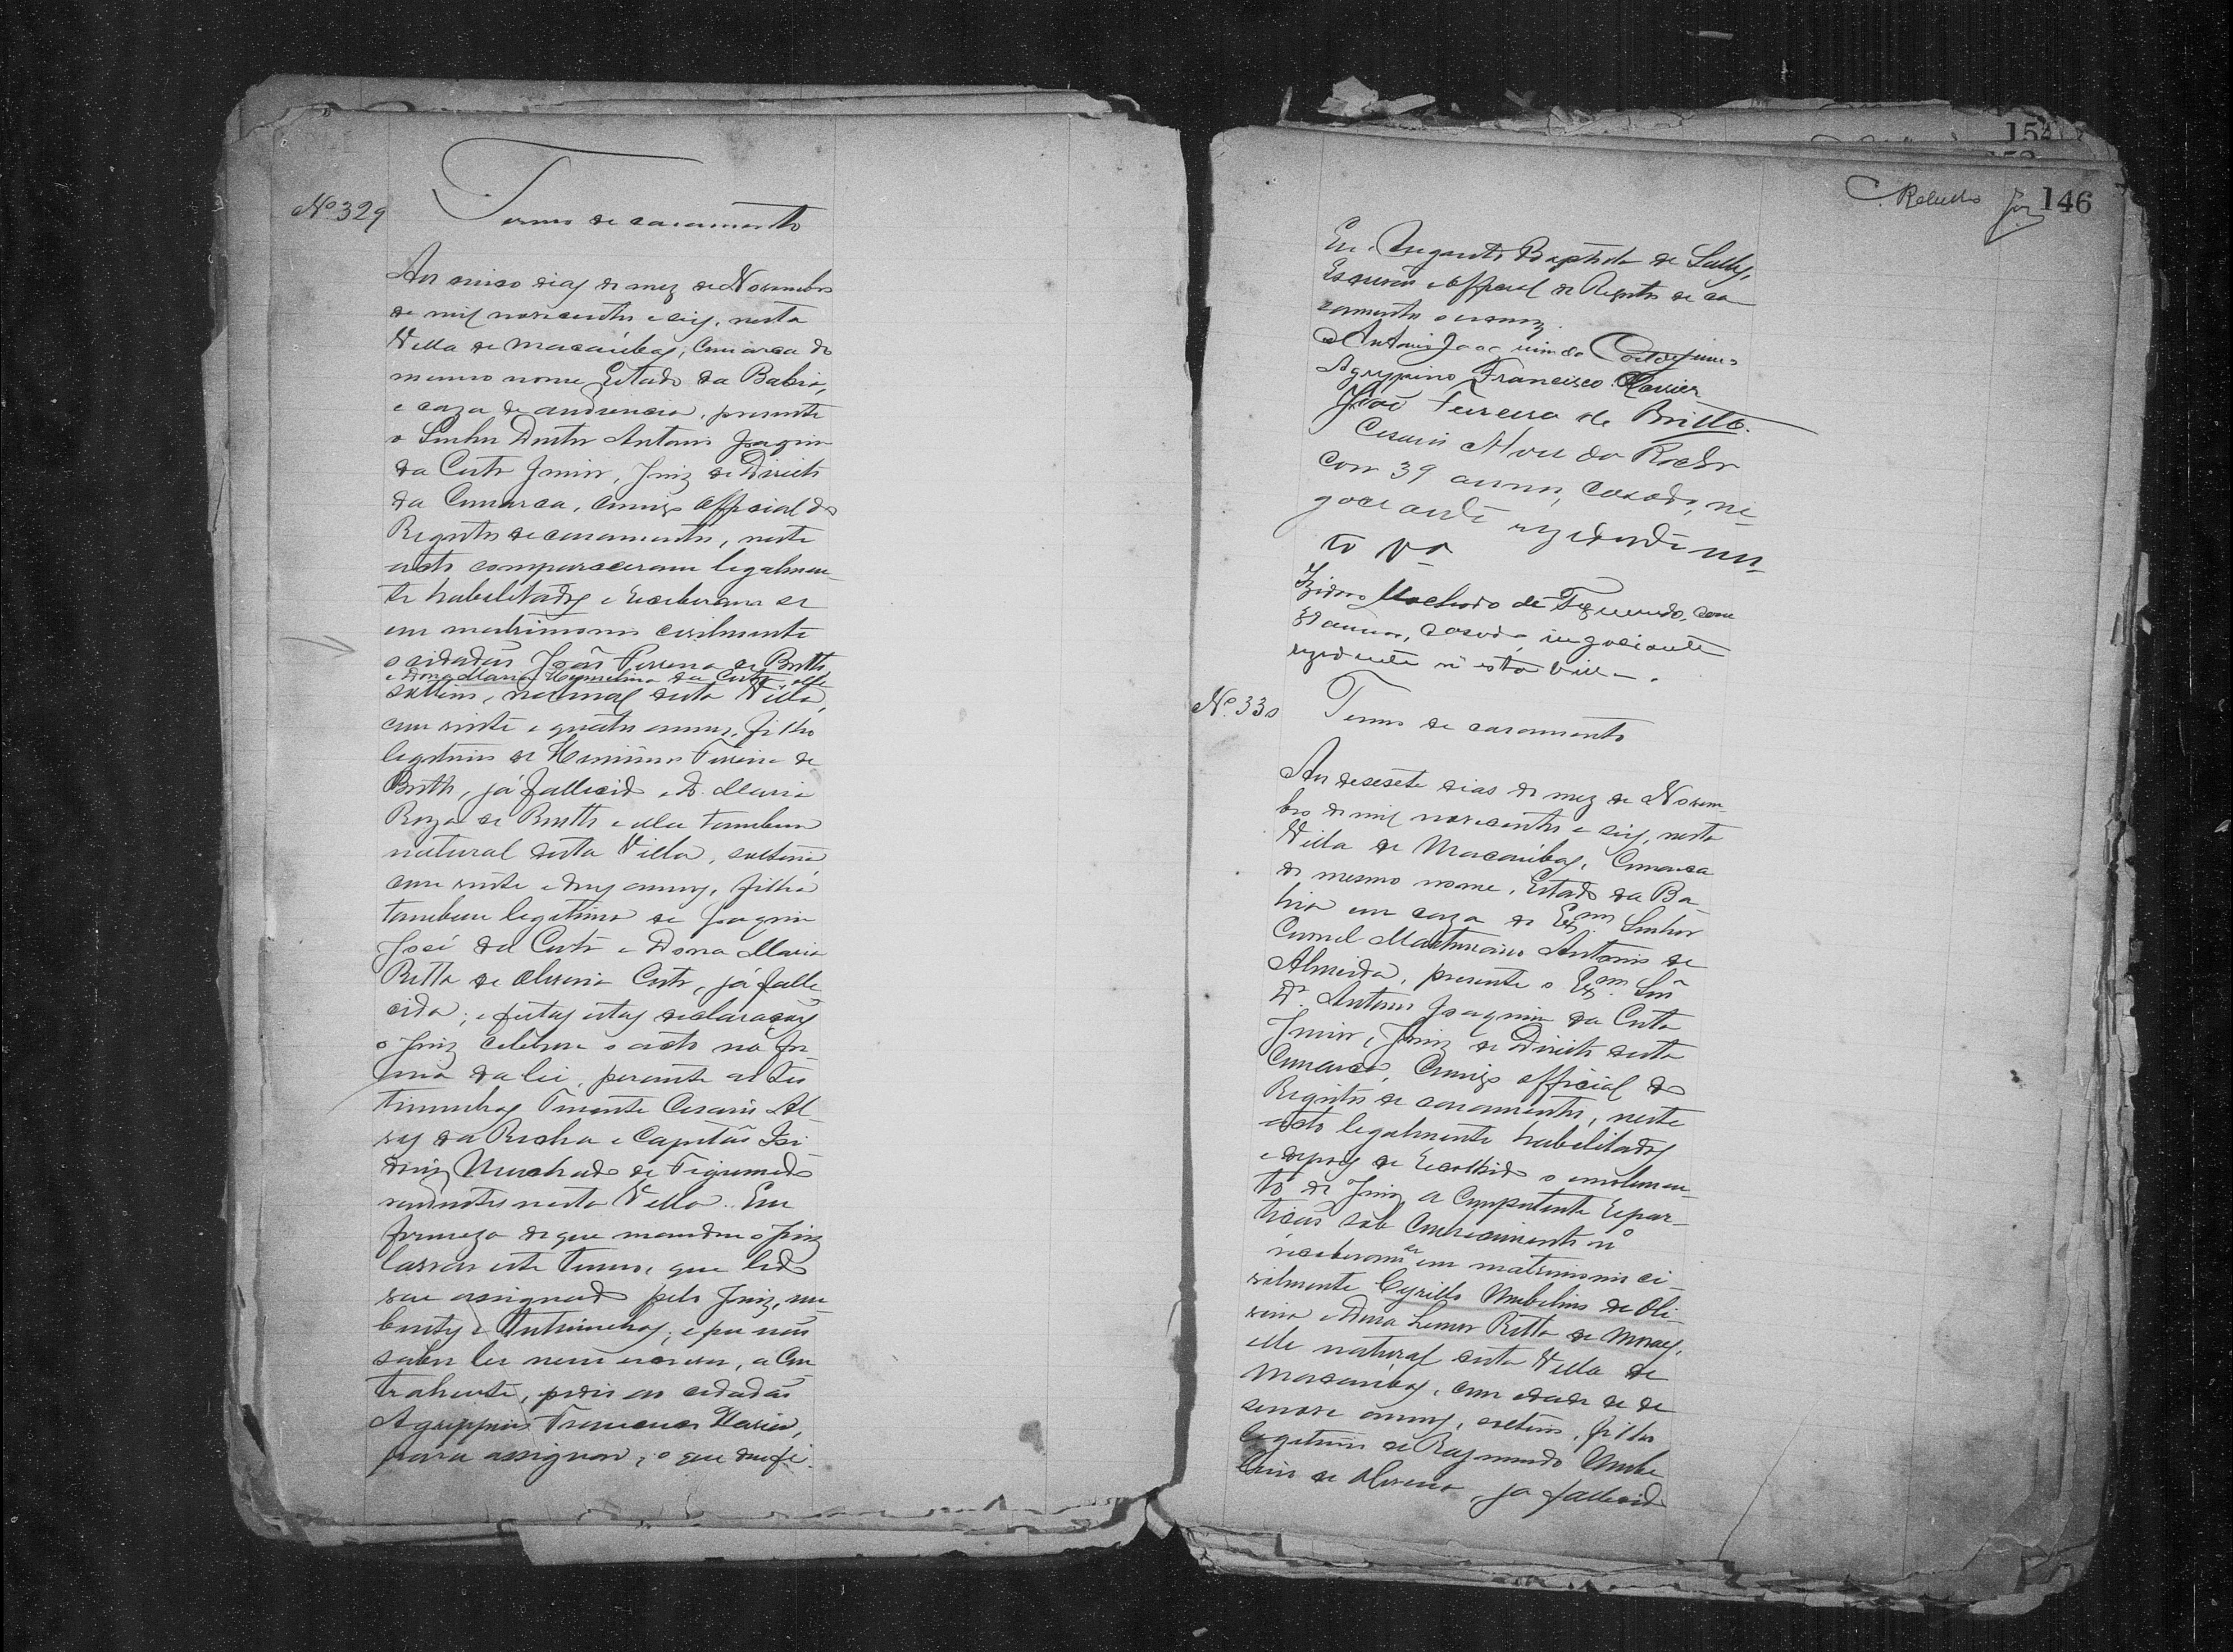 Nº 329
Termo de casamento
Aos cinco dias do mez de Novembro
de mil novecentos e seis, nesta
Villa de Macaúbas, Comarca do
mesmo nome Estado da Bahia,
e caza de audiencia, presente
o Senhor Doutor Antonio Joaquim
da Costa Junior, Juiz de Direito
da Comarca, comigo official do
Registro de casamentos, neste
acto compareceram legalmen-
te habilitados e receberam se
em matrimonio civilmente
o cidadão João Ferreira de Britto,
e Dona Maria da Costa, elle
solteiro, natural desta Villa,
com vinte e quatro annos, filho
legitimo de Herminio Ferreira de
Britto, já fallecido e D. Maria
Roza de Britto e ella tambem
natural desta Villa, solteira,
com vinte e dois annos, filha
tambem legitima de Joaquim
José da Costa e Dona Maria
Ritta de Oliveira Costa, já falle
cida; e feitas estas declarações
o Juiz celebrou o acto na for-
ma da lei, perante as tes
timunhas Tenente Cesario Al
ves da Rocha e Capitão Izi-
doro Machado de Figueredo
residentes nesta Villa. Em
firmeza do que mandou o Juiz
lavrar este termo, que lido
vae assignado pelo Juiz, nu
bentes e testimunhas; e por não
saber ler nem escrever, a con
trahente, pedio ao cidadão
Agrippino Francisco Xavier,
para assignar, o que dou fé.
146
Eu, Baptista de
Escrivão e official do Registro de ca
zamentos o escrevy.
Antonio Joaquim da Costa Junior
Agrypino Francisco Xavier
João Ferreira de Britto.
Cesario Alves da Rocha
com 39 annos, casado, ne-
gociante rezidente nes-
ta Va
Izidoro Machado de Figueredo, com
annos, casado, negociante
rezidente n'esta Villa.
Nº 330
Termo de casamento
Aos desesete dias do mez de Novem-
bro de mil novecentos e seis, nesta
Villa de Macaúbas, Comarca
do mesmo nome, Estado da Ba-
hia em caza do Exmº Senhor
Coronel Antonio de
Almeida, presente o Exmº Snr
Dr. Antonio Joaquim da Costa
Junior, Juiz de Direito desta
Comarca, Comigo official do
Registro de casamentos, neste
acto legalmente habilitados
e depois de recolhido o emolumen-
to do Juiz a Competente repar-
tição sob conhecimento nº
receberam se em matrimonio ci-
vilmente Cyrillo Umbelino de Oli-
veira e Dona Ritta de Moraes,
elle natural desta Villa de
Macaúbas, com idade de de
senove annos, solteiro, filho
legitimo de Raymundo Umbe
lino de Oliveira, já fallecido